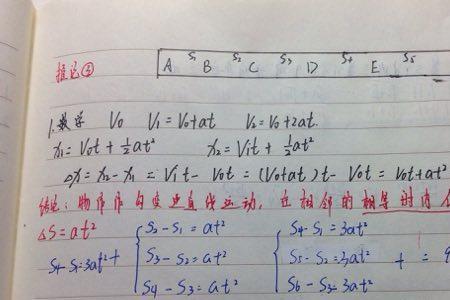 推论②
A S₁ B S₂ C S₃ D S₄ E S₅
1. 数学 V₀ V₁=V₀+at V₂=V₀+2at.
x₁=V₀t+½at² x₂=V₁t+½at²
△x=x₂-x₁=V₁t-V₀t=(V₀+at)t-V₀t=V₀t+at²
结论：物体作匀变速直线运动，在相邻的相等时内
△S=at²
S₂-S₁=at² S₄-S₁=3at²
S₄-S₁=3at²+ S₃-S₂=at² S₅-S₂=3at² + =
S₄-S₃=at² S₆-S₃=3at²